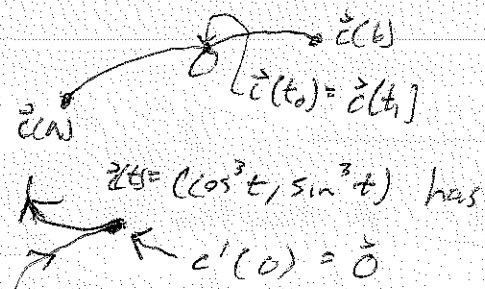 c⃗(b)
c⃗(t₀) = c⃗(t₁]
c⃗(a)
c⃗(t) = (cos³t, sin³t) has
c'(0) = 0⃗